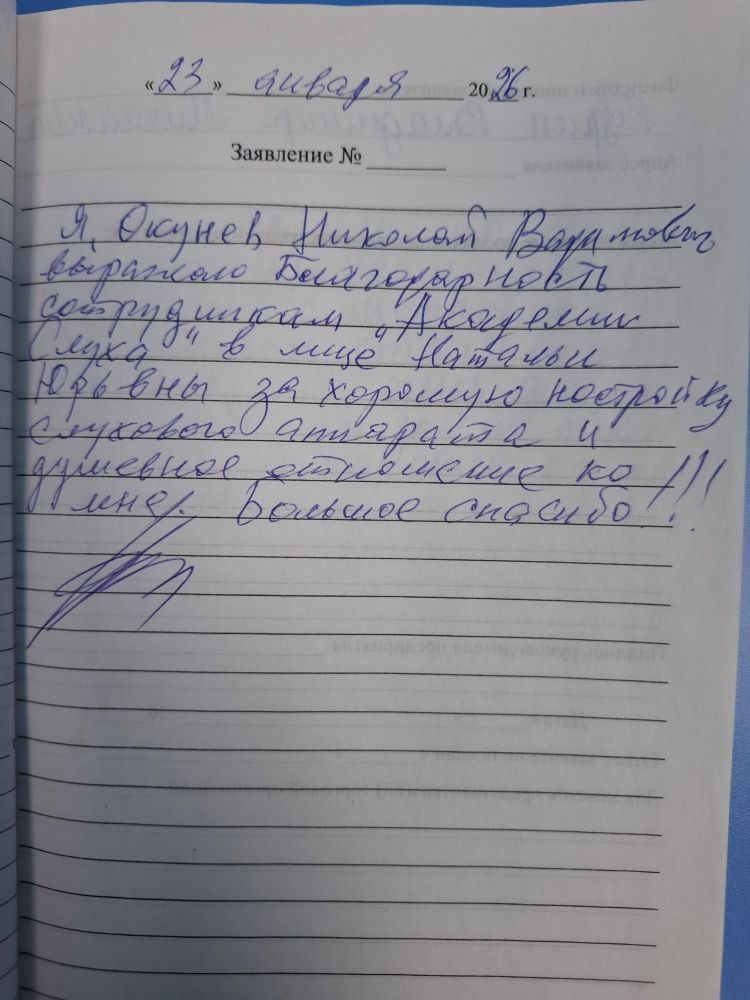 «23» января 2026 г.
Заявление №
Я, Окунев Николай Вадимович
выражаю Благодарность
сотрудникам "Академии
Слуха" в лице Натальи
Юрьвны за хорошую настройку
слухового аппарата и
душевное отношение ко
мне. Большое спасибо!!!